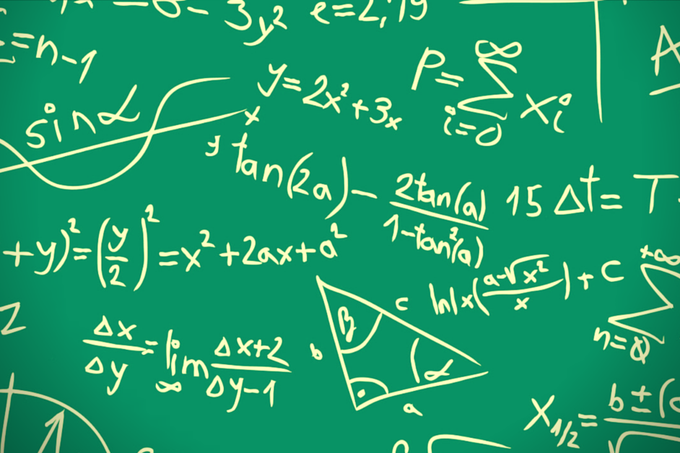 3y² e=2,79
=n-1
sinα
y=2x²+3x
P=∑ xi
∞
i=0
A
x
y
tan(2a)- 2tan(a)/1-tan²(a)
15 Δt= T
+y)²=(y/2)²=x²+2ax+a²
ln|x(a-√x²/x)+C
+∞
∑
n=0
Δx/Δy=lim Δx+2/Δy-1
∞
β
c
b
α
a
X1/2= b±